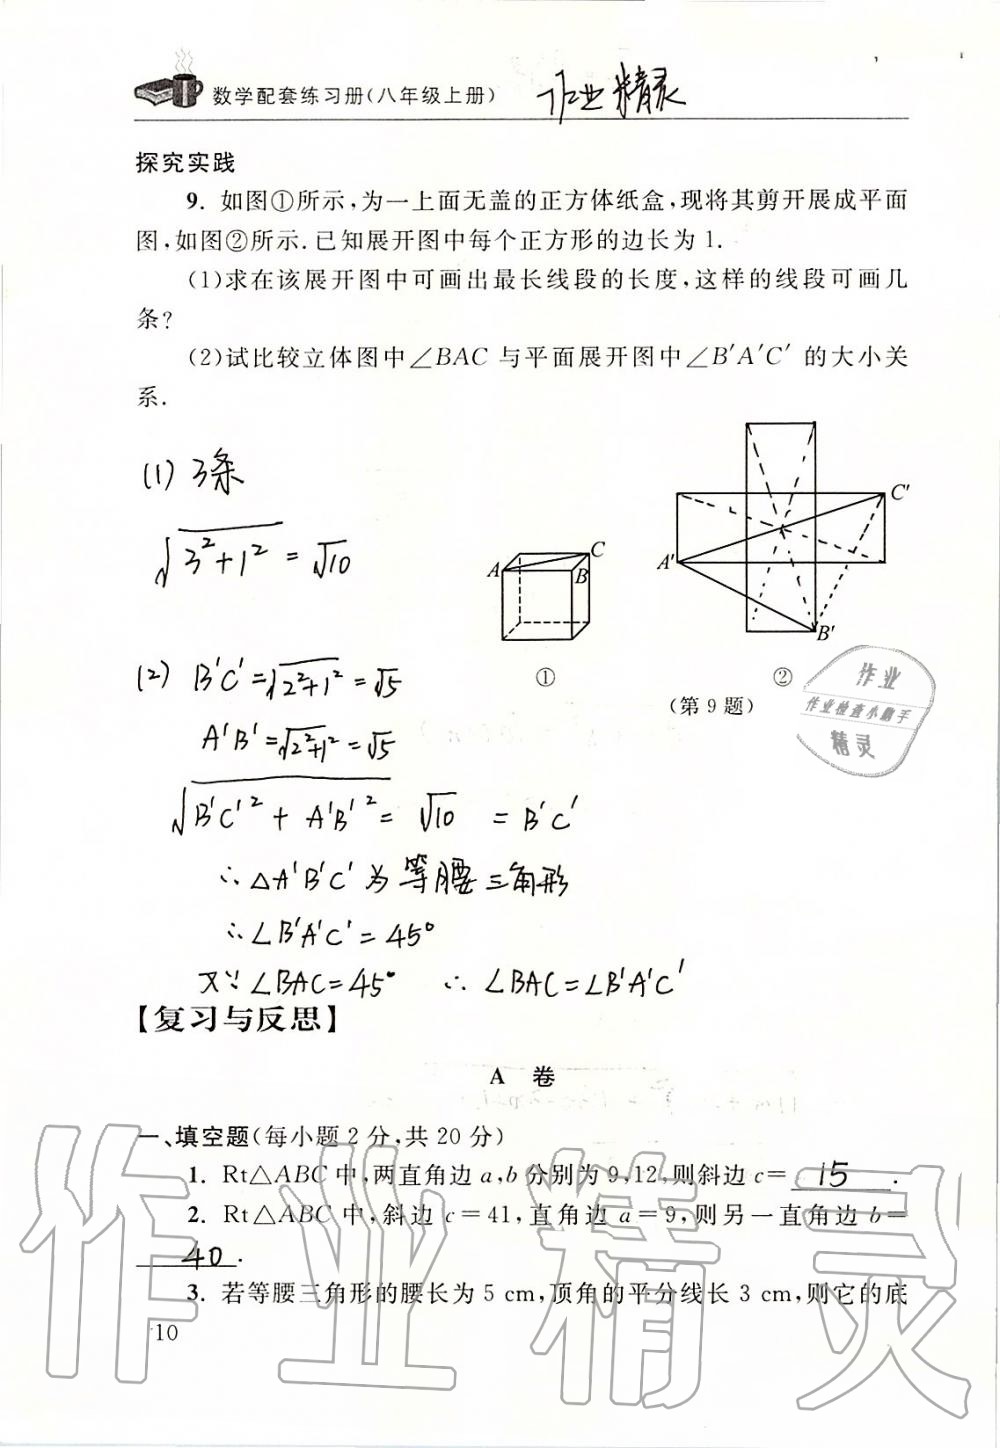 数学配套练习册(八年级上册)
作业精灵
探究实践
9. 如图①所示,为一上面无盖的正方体纸盒,现将其剪开展成平面
图,如图②所示.已知展开图中每个正方形的边长为1.
(1)求在该展开图中可画出最长线段的长度,这样的线段可画几
条?
(2)试比较立体图中∠BAC 与平面展开图中∠B′A′C′ 的大小关
系.
(1) 3条
√(3²+1²) = √10
A B C
①
A′ B′ C′
②
(第9题)
(2) B′C′=√(2²+1²)=√5
A′B′=√(2²+1²)=√5
√(B′C′² + A′B′²)= √10 = B′C′
∴△A′B′C′为等腰三角形
∴∠B′A′C′=45°
又∵∠BAC=45° ∴∠BAC=∠B′A′C′
作业
作业检查小助手
精灵
【复习与反思】
A 卷
一、填空题(每小题2分,共20分)
1. Rt△ABC 中,两直角边 a,b 分别为9,12,则斜边 c= 15 .
2. Rt△ABC 中,斜边 c=41,直角边 a=9,则另一直角边 b=
40 .
3. 若等腰三角形的腰长为5 cm,顶角的平分线长3 cm,则它的底
10
作业精灵